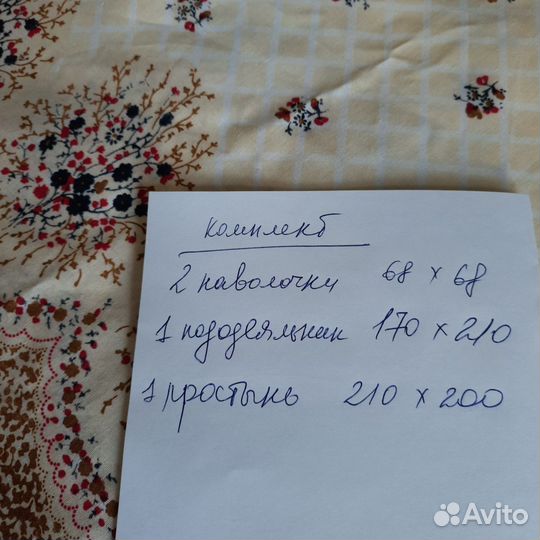 комплект
2 наволочки 68 x 68
1 пододеяльник 170 x 210
1 простынь 210 x 200
Avito